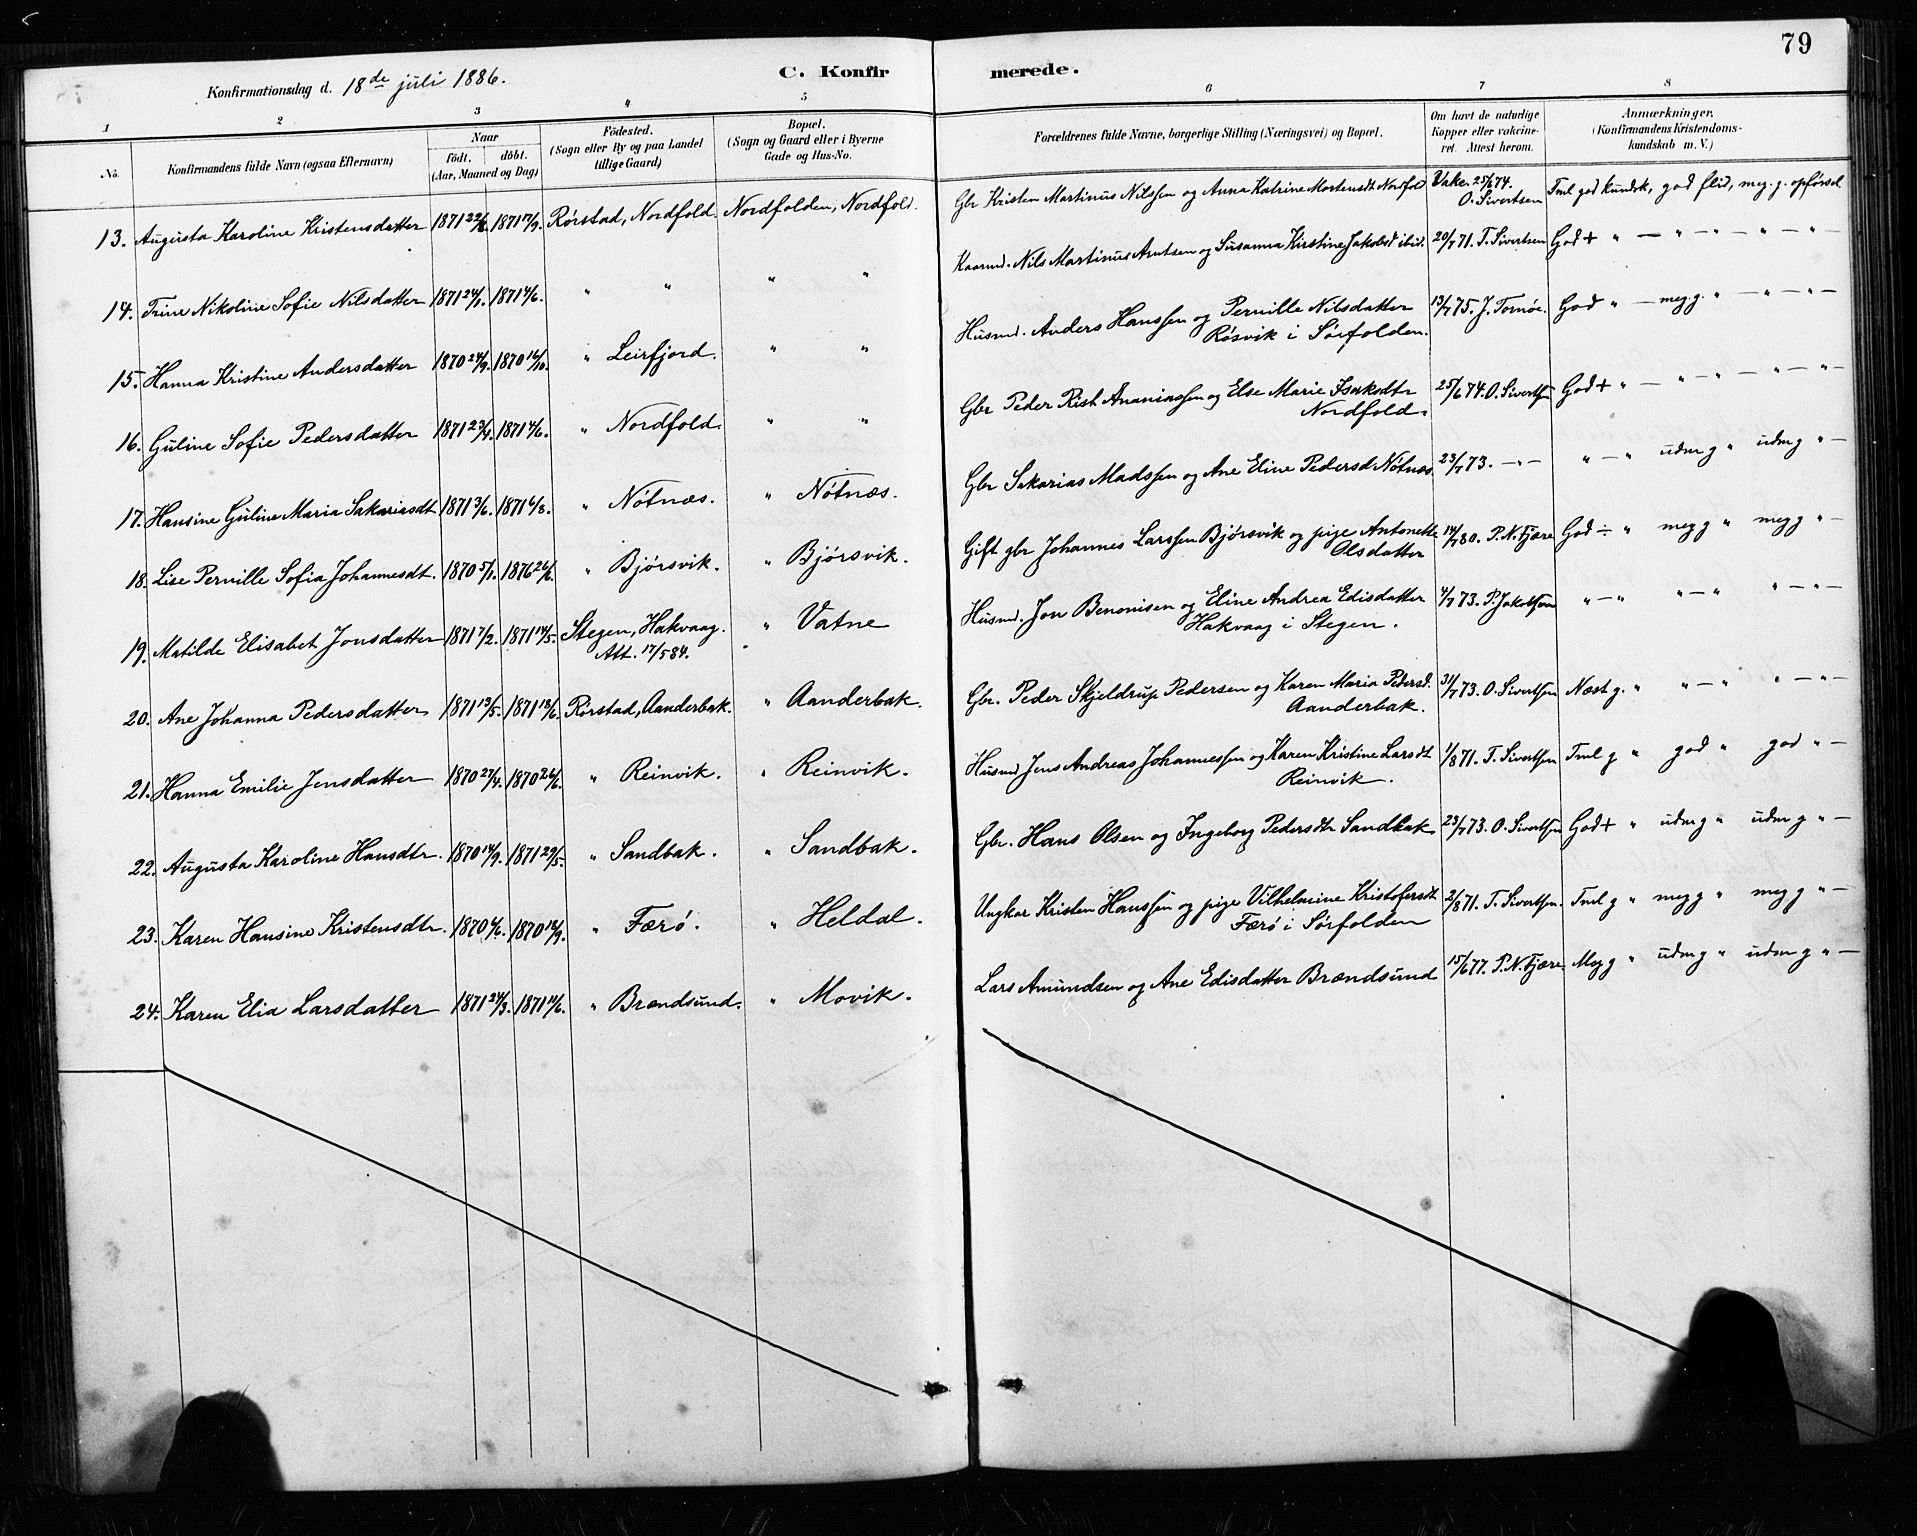 79
Konfirmationsdag d. 18de juli 1886.
C. Konfirmerede.
1 2 3 4 5 6 7 8
No.
Konfirmandens fulde Navn (ogsaa Efternavn)
Naar
födt. döbt.
(Aar, Maaned og Dag)
Födested.
(Sogn eller By og paa Landet
tillige Gaard)
Bopæl.
(Sogn og Gaard eller i Byerne
Gade og Hus-No.
Forældrenes fulde Navne, borgerlige Stilling (Næringsvei) og Bopæl.
Om havt de naturlige
Kopper eller vakcine-
ret. Attest herom.
Anmærkninger.
(Konfirmandens Kristendoms-
kundskab m. V.)
13. Augusta Karoline Kristensdatter 1871 22/6. 1871 17/9. Rørstad, Nordfold. Nordfolden, Nordfold. Gbr Kristen Martinus Nilssen og Anna Katrine Mortensdt Nordfold Vakc. 25/6 74. O. Sivertsen Tml god kundsk, god flid, meg. g. opførsel
14. Trine Nikoline Sofie Nilsdatter 1871 24/1. 1871 4/6. " " " " Kaarmd. Nils Martinus Arntsen og Susanna Kirstine Jakobsd ibid. 20/7 71. T. Sivertsen God + " — " — " — " —
15. Hanna Kristine Andersdatter 1870 24/9. 1870 16/10. " Leirfjord. " " Husmd. Anders Hanssen og Pernille Nilsdatter
Røsvik i Sørfolden. 13/7 75. J. Tornøe. God " — meg. g. " — " — " —
16. Guline Sofie Pedersdatter 1871 23/4. 1871 4/6. " Nordfold. " " Gbr Peder Rist Ananiassen og Else Marie Isaksdtr
Nordfold. 25/6 74. O. Sivertsen God + " — " — " — " — " —
17. Hansine Guline Maria Sakariasdt 1871 3/6. 1871 6/8. " Nötnæs. " Nötnæs. Gbr Sakarias Madssen og Ane Eline Pedersd Nötnæs. 23/7 73. — " — " — " udm g " udm g " —
18. Lise Pernille Sofia Johannesdt. 1870 5/1. 1876 26/6. " Bjørsvik. " Bjørsvik. Gift gbr Johannes Larssen Bjørsvik og pige Antonette
Olsdatter 14/7 80. P. N. Fjære God ÷ " meg g " meg g " —
19. Matilde Elisabet Jonsdatter 1871 7/2. 1871 14/5. Stegen, Hakvaag.
Att. 17/5 84. " Vatne Husmd. Jon Benonisen og Eline Andrea Edisdatter
Hakvaag i Stegen. 4/7 73. P. Jakobsen " — " " — " " — " —
20. Ane Johanna Pedersdatter 1871 13/5. 1871 18/6. Rørstad, Aanderbak. " Aanderbak. Gbr. Peder Skjeldrup Pedersen og Karen Maria Pedersd.
Aanderbak. 31/7 73. O. Sivertsen Næst g. " " — " " — " —
21. Hanna Emilie Jensdatter 1870 27/4. 1870 26/6. " Reinvik. " Reinvik. Husmd Jens Andreas Johannessen og Karen Kristine Larsdt
Reinvik. 1/8 71. T. Sivertsen Tml g " god " god " —
22. Augusta Karoline Hansdtr. 1870 14/9. 1871 29/5. " Sandbak. " Sandbak. Gbr. Hans Olsen og Ingeborg Pedersdtr Sandbak 23/7 73. O. Sivertsen God + " udm g " udm g " —
23. Karen Hansine Kristensdtr. 1870 4/6. 1870 18/9. " Færö. " Heldal. Ungkar Kristen Hanssen og pige Vilhelmine Kristofersdt
Færö i Sørfolden 2/8 71. T. Sivertsen. Tml g " meg g " meg g " —
24. Karen Elia Larsdatter 1871 24/3. 1871 11/6. " Brændsund. " Movik. Lars Amundsen og Ane Edisdatter Brændsund 15/6 77. P. N. Fjære. Meg g " udm g " udm g " —